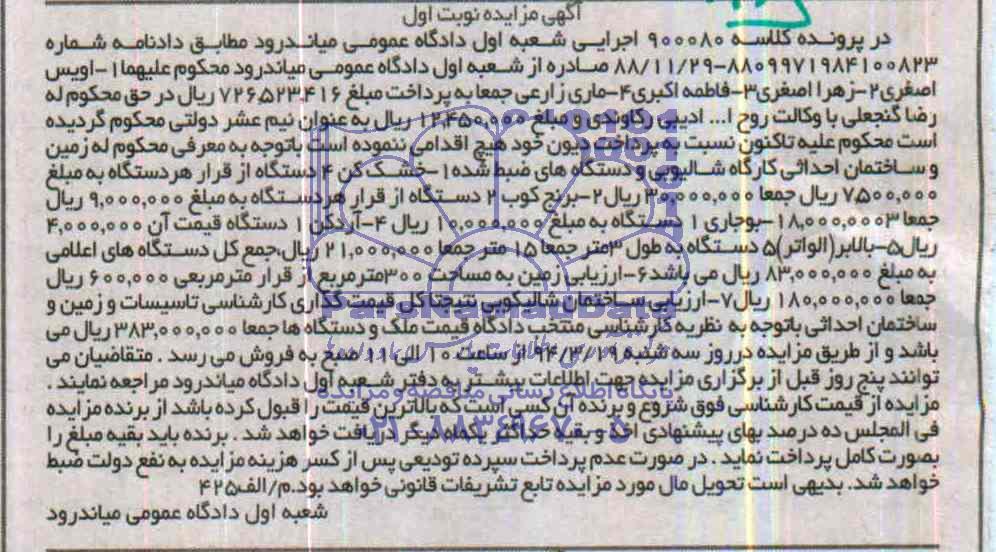 آگهی مزایده نوبت اول
در پرونده کلاسه ۹۰۰۰۸۰ اجرایی شعبه اول دادگاه عمومی میاندرود مطابق دادنامه شماره
۸۸۰۹۹۷۱۹۸۴۱۰۰۸۲۳-۸۸/۱۱/۲۹ صادره از شعبه اول دادگاه عمومی میاندرود محکوم علیهما۱-اویس
اصغری۲-زهرا اصغری۳-فاطمه اکبری۴-ماری زارعی جمعا به پرداخت مبلغ ۷۲۶،۵۲۳،۴۱۶ ریال در حق محکوم له
رضا گنجعلی با وکالت روح ا... ادیبی رکاوندی و مبلغ ۱۲،۴۵۰،۰۰۰ ریال به عنوان نیم عشر دولتی محکوم گردیده
است محکوم علیه تاکنون نسبت به پرداخت دیون خود هیچ اقدامی ننموده است باتوجه به معرفی محکوم له زمین
و ساختمان احداثی کارگاه شالیوبی و دستگاه های ضبط شده۱-خشک کن ۴ دستگاه از قرار هر دستگاه به مبلغ
۷،۵۰۰،۰۰۰ ریال جمعا ۳۰،۰۰۰،۰۰۰ ریال۲-برنج کوب ۲ دستگاه از قرار هر دستگاه به مبلغ ۹،۰۰۰،۰۰۰ ریال
جمعا ۱۸،۰۰۰،۰۰۰۳-بوجاری ۱ دستگاه به مبلغ ۱۰،۰۰۰،۰۰۰ ریال ۴-آردکن ۱ دستگاه قیمت آن ۴،۰۰۰،۰۰۰
ریال۵-بالابر(الواتر)۵ دستگاه به طول ۳متر جمعا ۱۵ متر جمعا ۲۱،۰۰۰،۰۰۰ ریال،جمع کل دستگاه های اعلامی
به مبلغ ۸۳،۰۰۰،۰۰۰ ریال می باشد۶-ارزیابی زمین به مساحت ۳۰۰مترمربع از قرار مترمربعی ۶۰۰،۰۰۰ ریال
جمعا ۱۸۰،۰۰۰،۰۰۰ ریال۷-ارزیابی ساختمان شالیکوبی نتیجتا کل قیمت گذاری کارشناسی تاسیسات و زمین و
ساختمان احداثی باتوجه به نظریه کارشناسی منتخب دادگاه قیمت ملک و دستگاه ها جمعا ۳۸۳،۰۰۰،۰۰۰ ریال می
باشد و از طریق مزایده در روز سه شنبه ۹۴/۳/۱۹ از ساعت ۱۰ الی ۱۱ صبح به فروش می رسد . متقاضیان می
توانند پنج روز قبل از برگزاری مزایده جهت اطلاعات بیشتر به دفتر شعبه اول دادگاه میاندرود مراجعه نمایند .
مزایده از قیمت کارشناسی فوق شروع و برنده آن کسی است که بالاترین قیمت را قبول کرده باشد از برنده مزایده
فی المجلس ده درصد بهای پیشنهادی اخذ و بقیه حداکثر یکماه دیگر دریافت خواهد شد . برنده باید بقیه مبلغ را
بصورت کامل پرداخت نماید . در صورت عدم پرداخت سپرده تودیعی پس از کسر هزینه مزایده به نفع دولت ضبط
خواهد شد. بدیهی است تحویل مال مورد مزایده تابع تشریفات قانونی خواهد بود.م/الف۴۲۵
شعبه اول دادگاه عمومی میاندرود
ParsNamadData
پایگاه اطلاع رسانی مناقصه و مزایده
۰۲۱-۸۸۳۴۹۶۷۰-۵